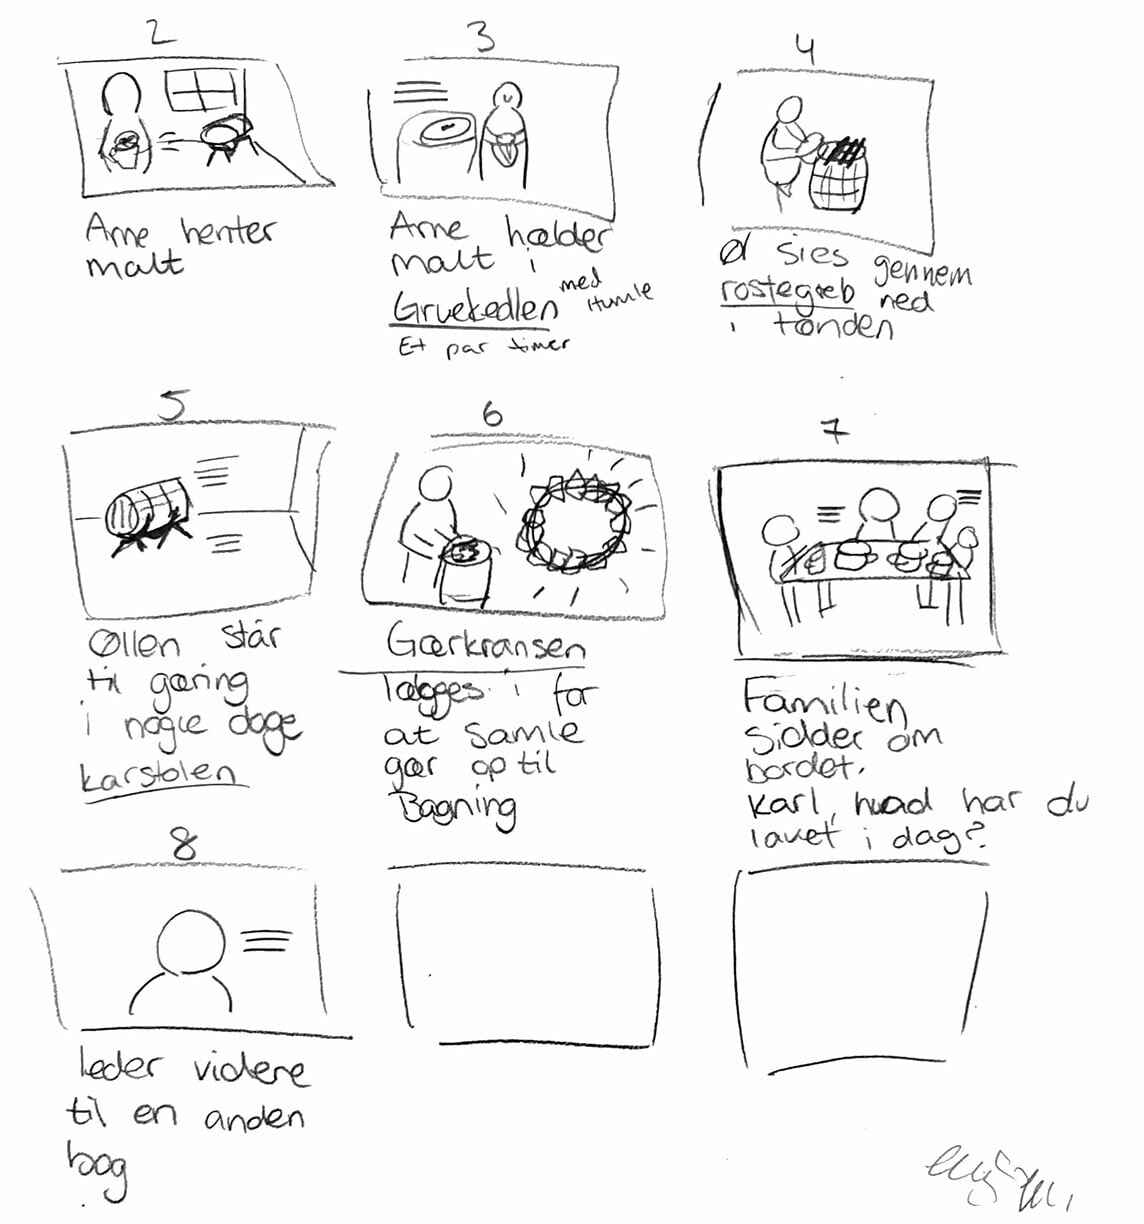 2
Arne henter
malt
3
Arne hælder
malt i
Gruekedlen med Humle
Et par timer
4
Øl sies gennem
rostegreb ned
i tønden
5
Øllen står
til gæring
i nogle dage
karstolen
6
Gærkransen
lægges i for
at samle
gær op til
Bagning
7
Familien
sidder om
bordet.
Karl, hvad har du
lavet i dag?
8
leder videre
til en anden
bog